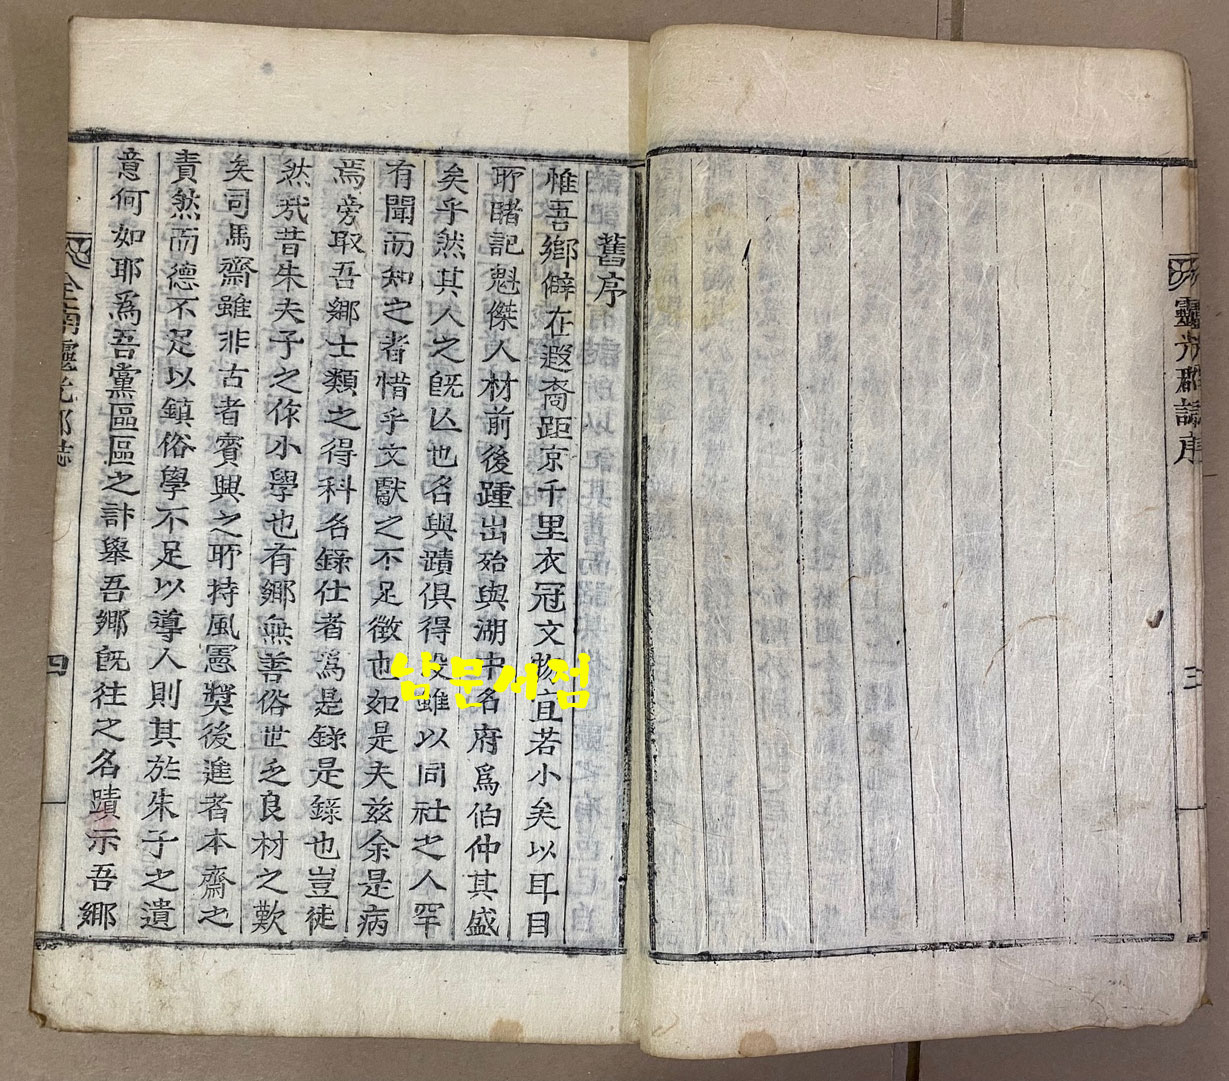 靈光郡誌序
三
舊序
惟吾鄕僻在遐裔距京千里衣冠文物宜若小矣以耳目
所睹記魁傑人材前後踵出殆與湖中名府爲伯仲其盛
矣乎然其人之旣亾也名與蹟俱得沒雖以同社之人罕
有聞而知之者惜乎文獻之不足徵也如是夫玆余是病
焉旁取吾鄕士類之得科名錄仕者爲是錄是錄也豈徒
然㦲昔朱夫子之作小學也有鄕無善俗世乏良材之歎
矣司馬齋雖非古者賓興之所持風憲奬後進者本齋之
責然而德不足以鎭俗學不足以導人則其於朱子之遺
意何如耶爲吾黨區區之計擧吾鄕旣往之名蹟示吾鄕
全南靈光郡誌
四
남문서점